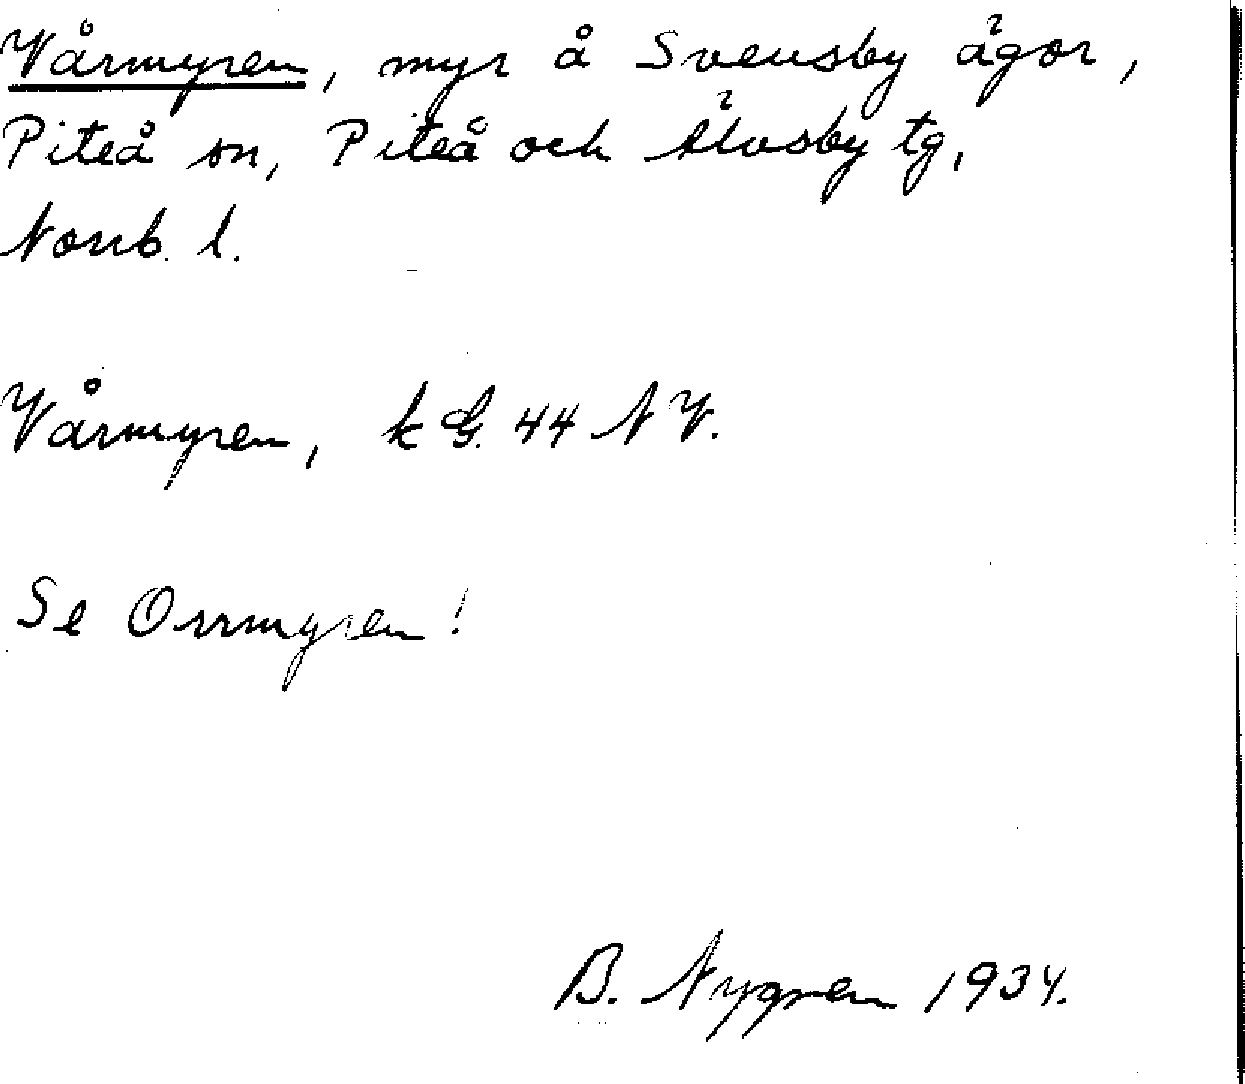 Vårmyren, myr å Svensby ägor,
Piteå sn, Piteå och Älvsby tg,
Norrb. l.
Vårmyren, k G. 44 N V.
Se Orrmyren!
B. Nygren 1934.